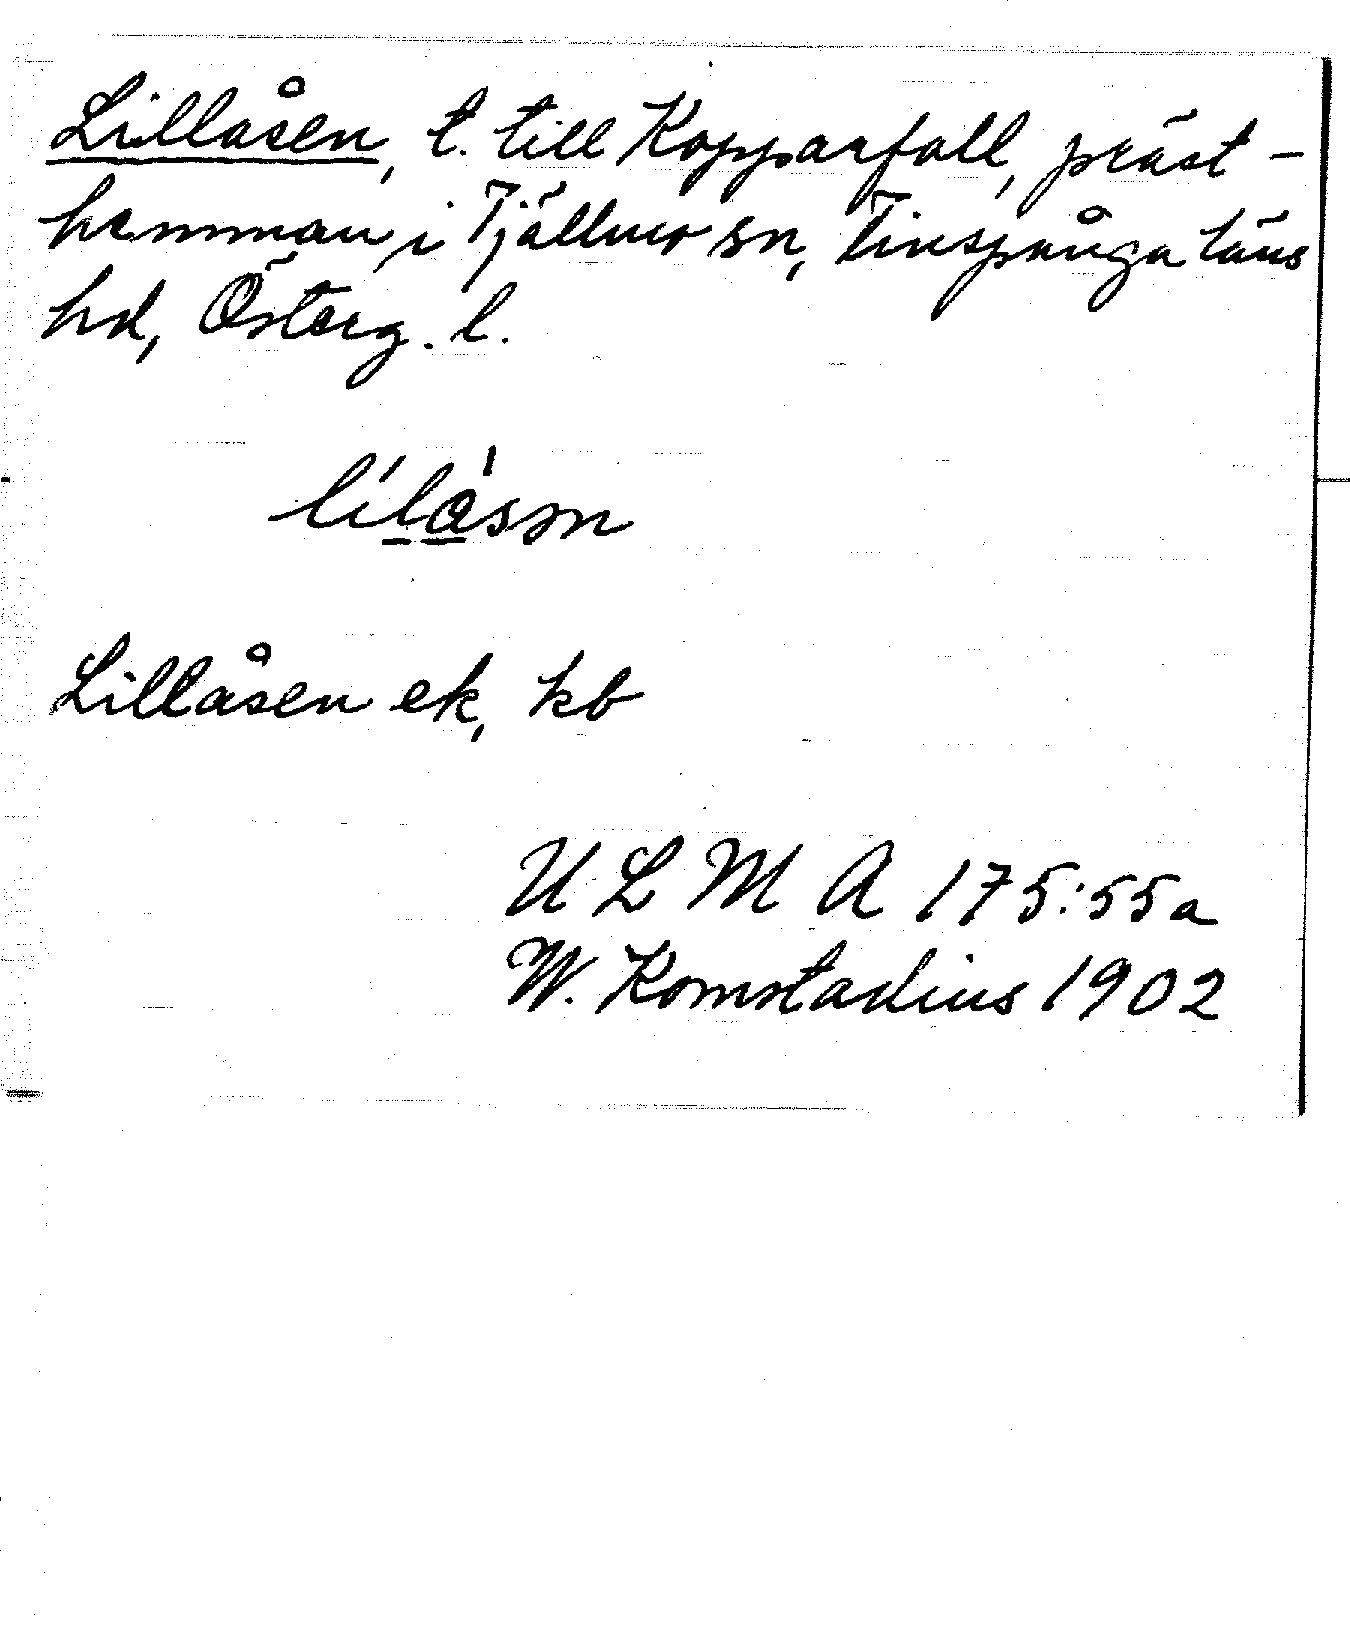 Lillåsen, t. till Kopparfall, präst-
hemman i Tjällmo sn, Finspånga läns
hd, Österg. l.
lílåsən
Lillåsen ek, kb
U L M A 175:55a
W. Komstadius 1902